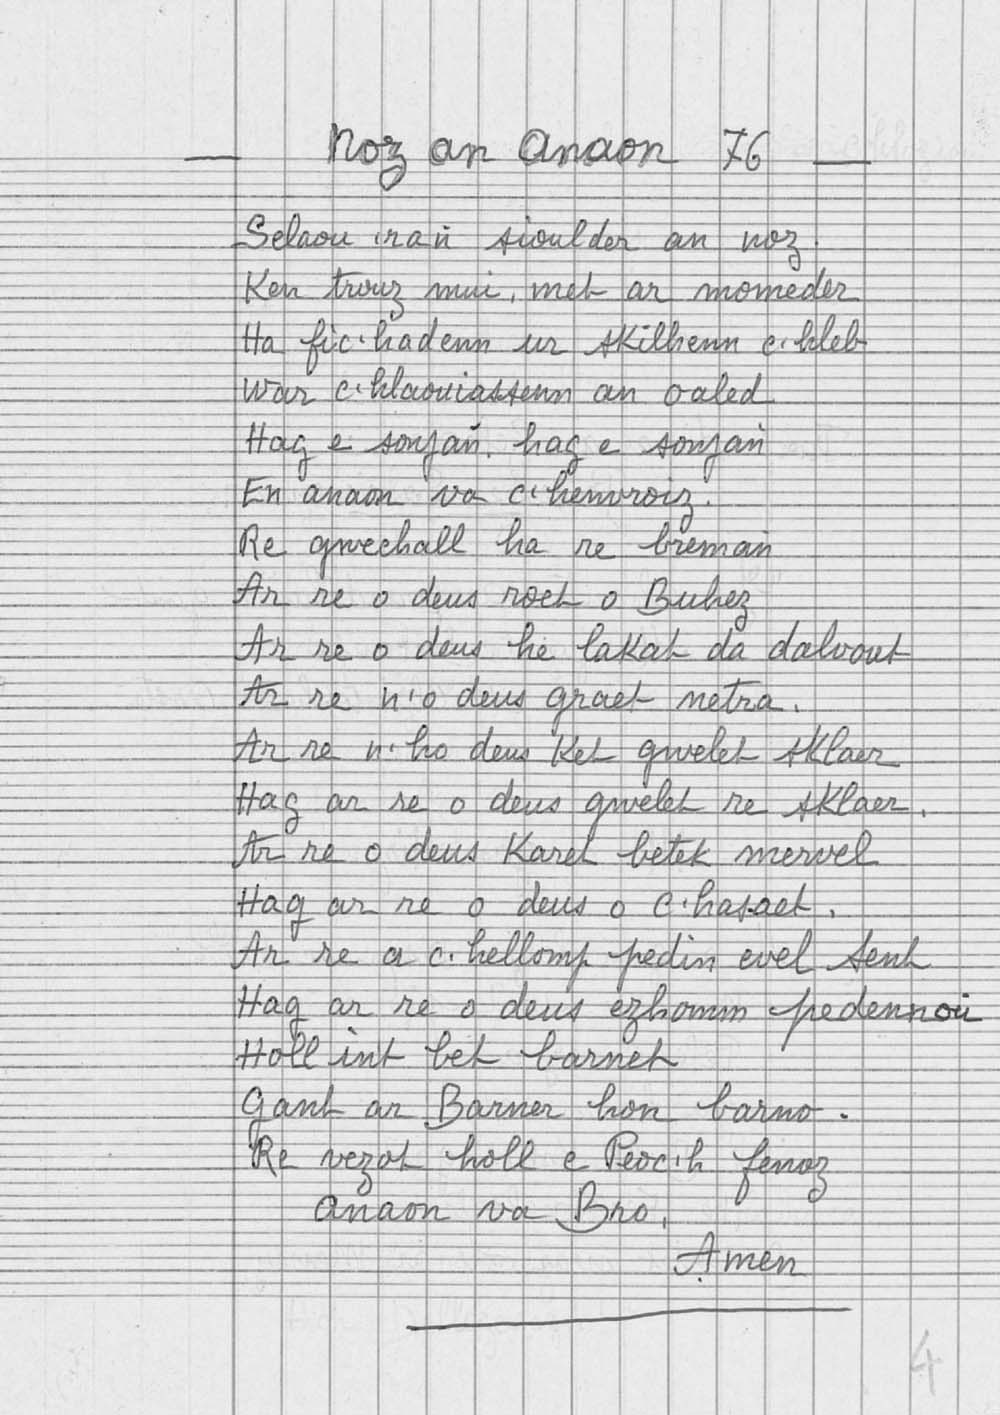 — Noz an Anaon 76 —
Selaou ran sioulder an noz.
Ken trouz mui, met ar momeder
Ha fic'hadenn ur skilhenn c'hleb
War c'hlaouiastenn an oaled
Hag e sonjañ, hag e sonjañ
En anaon va c'henvroiz.
Re gwechall ha re bremañ
Ar re o deus roet o Buhez
Ar re o deus he lakat da dalvout
Ar re n'o deus graet netra.
Ar re n'ho deus Ket gwelet sklaer
Hag ar re o deus gwelet re sklaer.
Ar re o deus Karet betek mervel
Hag ar re o deus o C'hasaet.
Ar re a c'hellomp pedin evel Sent
Hag ar re o deus ezhomm pedennoù
Holl int bet barnet
Gant ar Barner hon barno.
Re vezot holl e Peoc'h fenoz
Anaon va Bro.
Amen
4